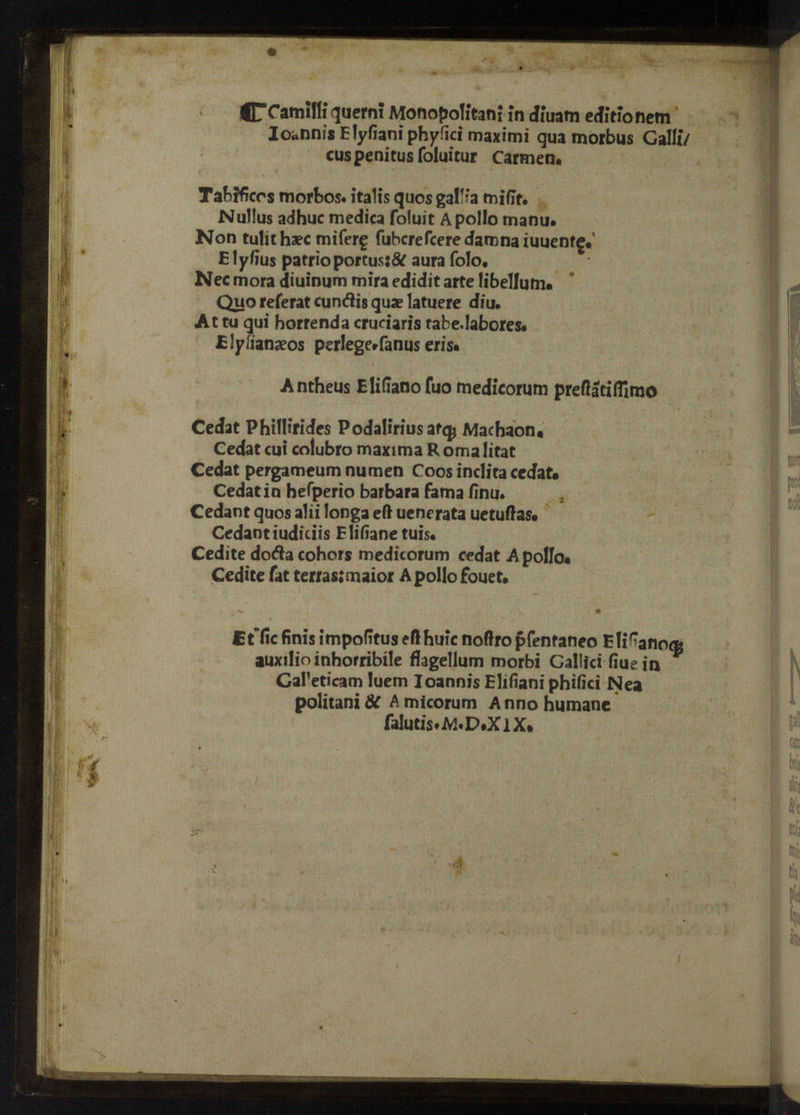 Camilli querni Monopolitani in diuam editionem
Ioannis Elyſiani phyſici maximi qua morbus Galli/
cus penitus ſoluitur Carmen.
Tabificos morbos. italis quos gallia miſit.
Nullus adhuc medica ſoluit Apollo manu.
Non tulit hæc miſerę ſubcreſcere damna iuuentę.
Elyſius patrio portus:& aura ſolo.
Nec mora diuinum mira edidit arte libellum.
Quo referat cunctis quæ latuere diu.
At tu qui horrenda cruciaris tabe.labores.
Elyſianæos perlege.ſanus eris.
Antheus Eliſiano ſuo medicorum preſtātiſſimo
Cedat Phillirides Podalirius atqꝫ Machaon.
Cedat cui colubro maxima Roma litat
Cedat pergameum numen Coos inclita cedat.
Cedat in heſperio barbara fama ſinu.
Cedant quos alii longa eſt uenerata uetuſtas.
Cedant iudiciis Eliſiane tuis.
Cedite docta cohors medicorum cedat Apollo.
Cedite ſat terras:maior Apollo fouet.
Et ſic finis impoſitus eſt huic noſtro p̄ſentaneo Eliſianoqꝫ
auxilio inhorribile flagellum morbi Gallici ſiue in
Galleticam luem Ioannis Eliſiani phiſici Nea
politani & Amicorum Anno humane
ſalutis.M.D.XIX.